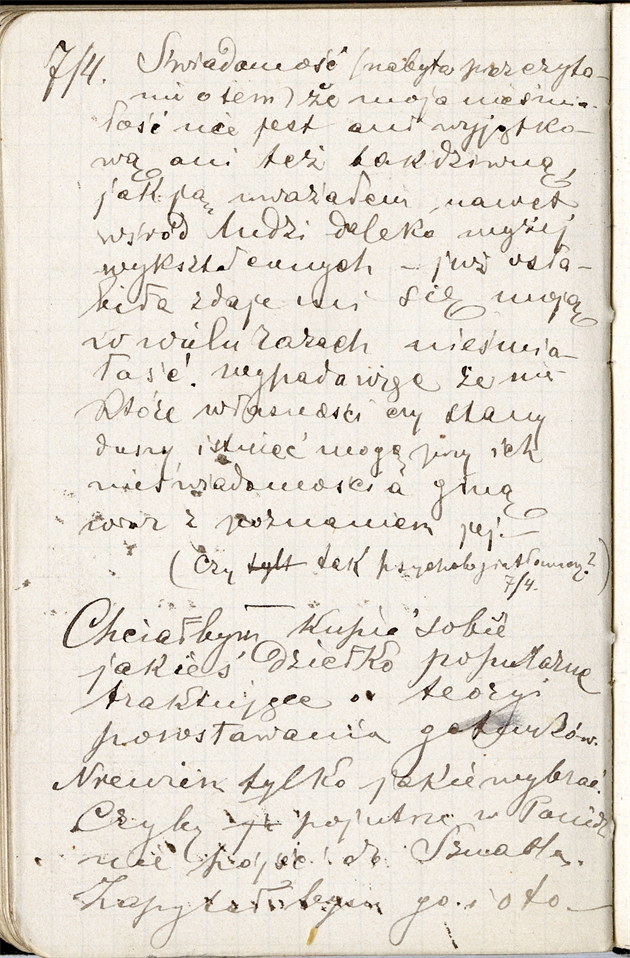 7/4. Świadomość (nabyta przeczyta-
niu o tem) że moja nieśmia-
łość nie jest ani wyjątko-
wą ani też tak dziwną,
jak ją uważałem nawet
wśród ludzi daleko wyżej
wykształconych – już osła-
biła zdaje mi się moją
w wielu razach nieśmia-
łość. Wypada więc że nie
które własności czy stany
duszy istnieć mogą przy ich
nieświadomości a giną
wraz z poznaniem jej. –
(Czy tak psycholog tłomaczy?)
7/4.
Chciałbym kupić sobie
jakieś dziełko popularne
traktujące o teoryi
powstawania gatunków.
Nie wiem tylko jakie wybrać.
Czyby pojutrze w Poniedz
nie pójść do Szwabe.
Zapytałbym go i o to –